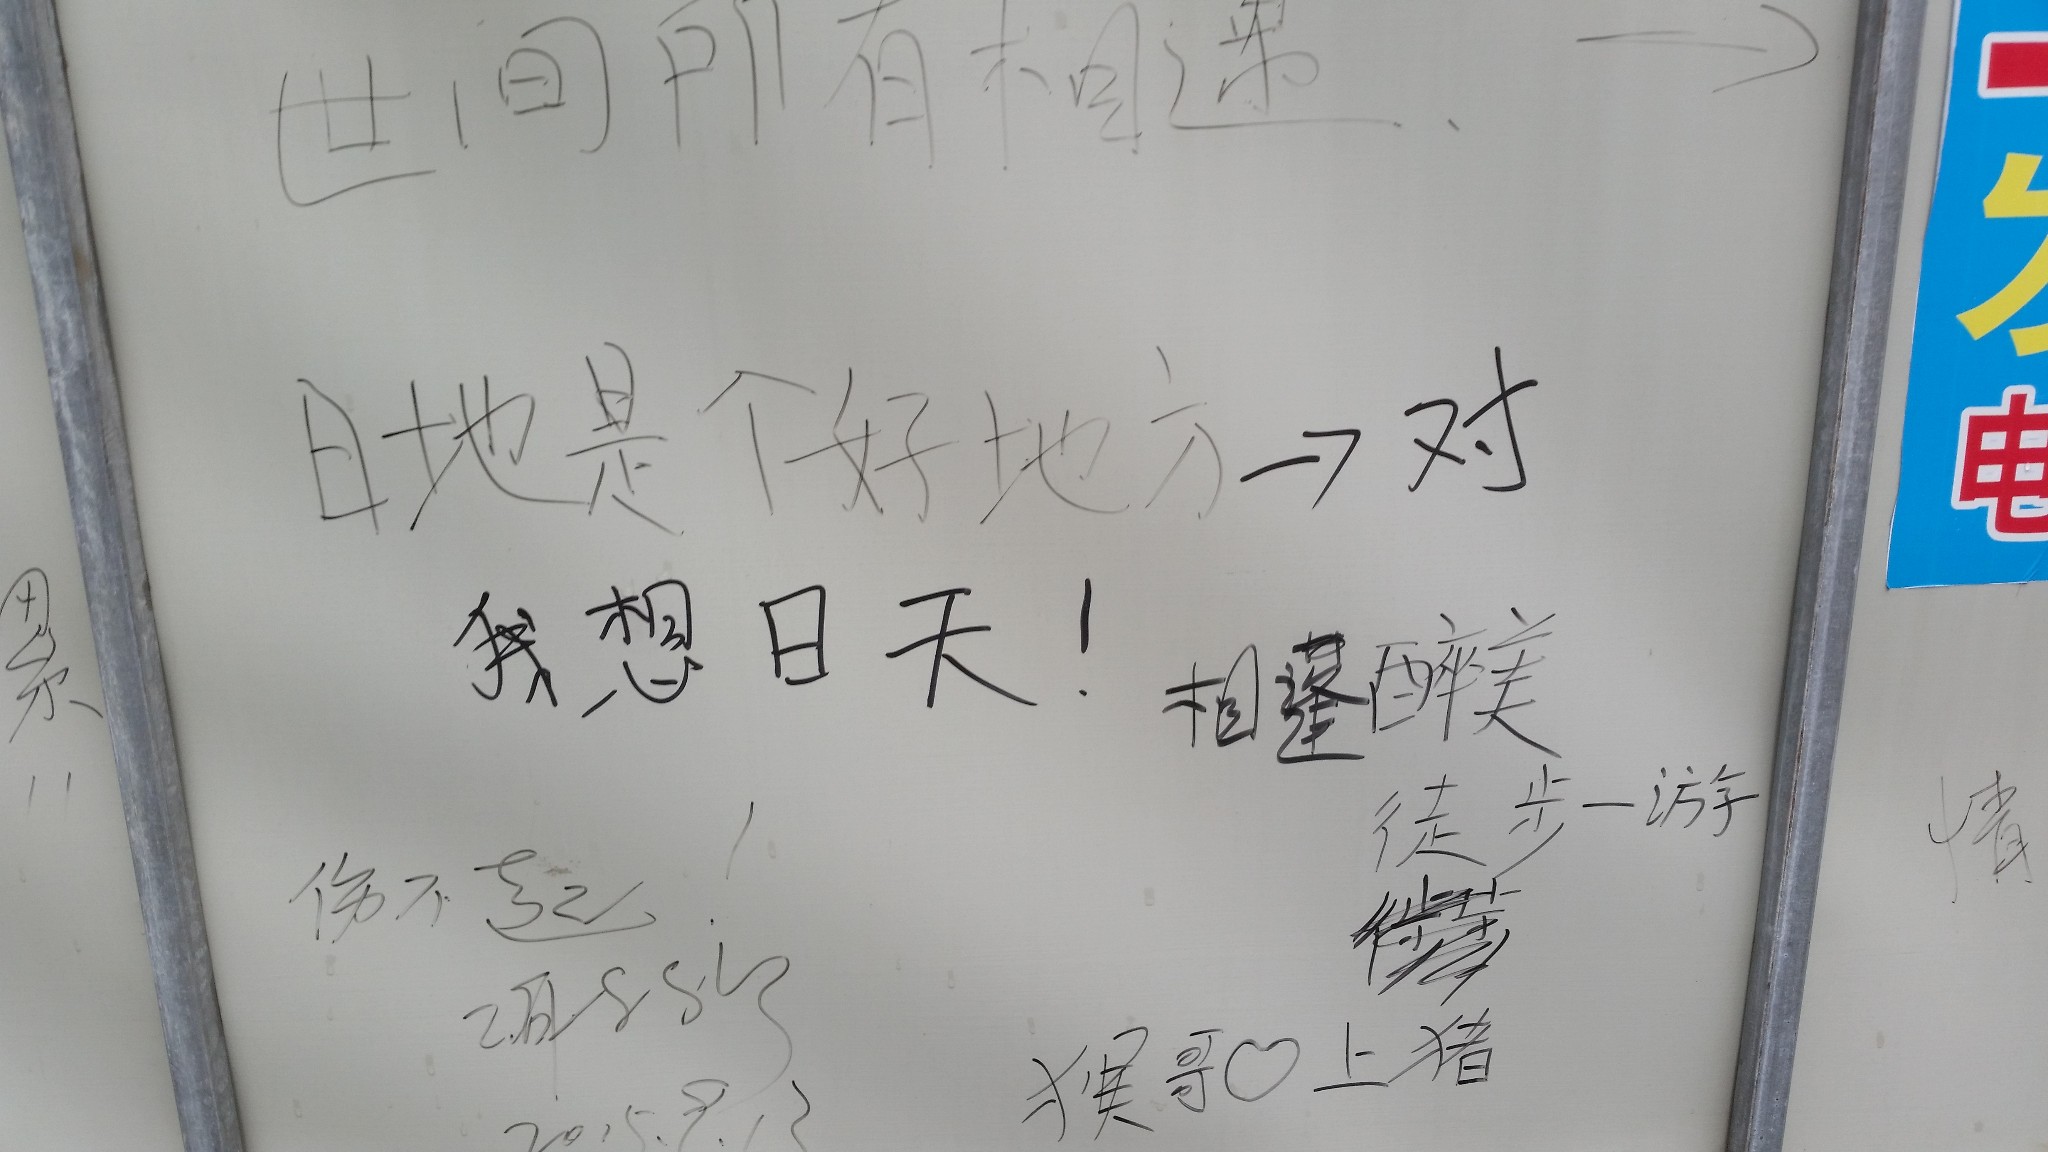 世间所有相遇. →
日地是个好地方→对
我想日天！
相逢醉美
徒步一游
累
伤不起！
2015.8.13
猴哥♡上猪
情
电